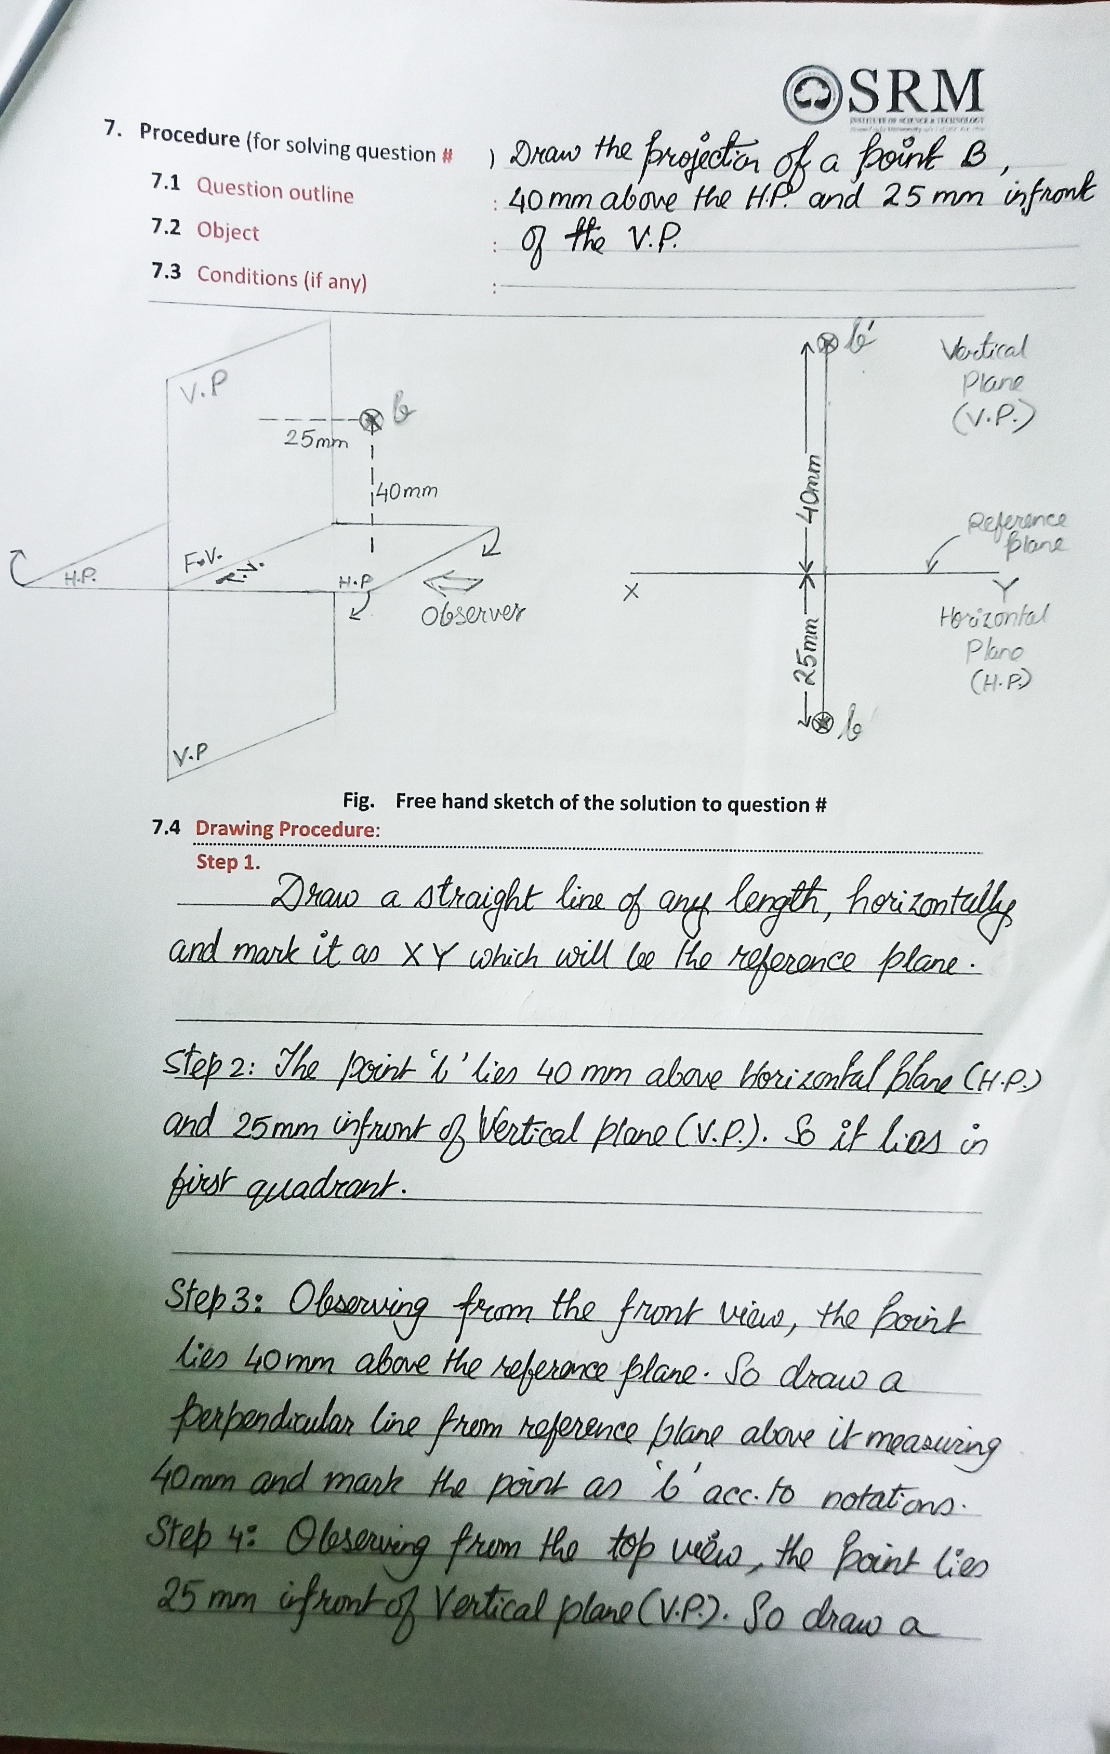 SRM
INSTITUTE OF SCIENCE & TECHNOLOGY
7. Procedure (for solving question # ) Draw the projection of a point B,
7.1 Question outline : 40mm above the H.P. and 25mm infront
7.2 Object : of the V.P.
7.3 Conditions (if any) :
V.P
b
25mm
40mm
H.P.
F.V.
H.P
Observer
V.P
b'
Vertical
Plane
(V.P.)
40mm
Reference
plane
X
Y
Horizontal
Plane
(H.P.)
25mm
b
Fig. Free hand sketch of the solution to question #
7.4 Drawing Procedure:
Step 1.
Draw a straight line of any length, horizontally
and mark it as XY which will be the reference plane.
Step 2: The point 'b' lies 40 mm above Horizontal plane (H.P.)
and 25mm infront of Vertical plane (V.P.). So it lies in
first quadrant.
Step 3: Observing from the front view, the point
lies 40mm above the reference plane. So draw a
perpendicular line from reference plane above it measuring
40mm and mark the point as 'b' acc. to notations.
Step 4: Observing from the top view, the point lies
25 mm infront of Vertical plane (V.P.). So draw a